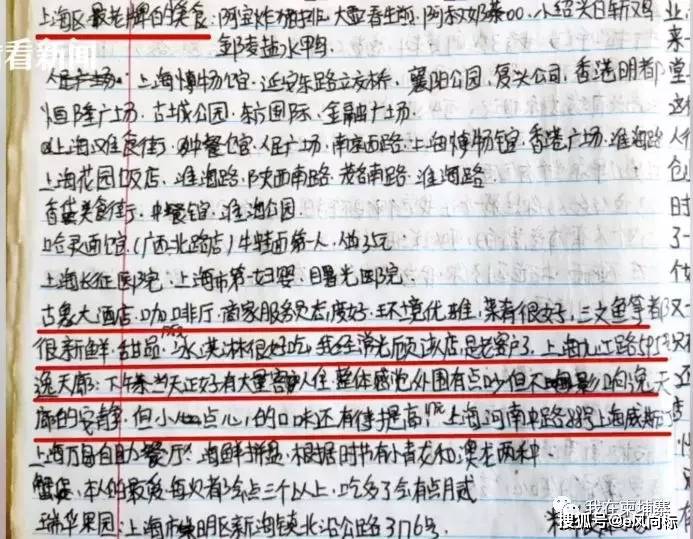 看看新闻
上海区最老牌的美食:阿宝炸猪排、大壶春生煎、阿叔奶茶00、小绍兴白斩鸡
盐水鸭
人民广场、上海博物馆、延安东路立交桥、襄阳公园、复兴公司、香港明都
恒隆广场、古城公园、东方国际、金融广场
上海美食街、中餐馆、人民广场、南京西路、上海博物馆、香港广场、淮海路
上海花园饭店、淮海路、陕西南路、茂名南路、淮海路
美食街、中餐馆、淮海公园
哈灵面馆、(广西北路店)牛蛙面第一人、做25元
上海长征医院、上海市第一妇婴、曙光医院
古象大酒店、咖啡厅、商家服务员态度好、环境优雅、菜肴很好、三文鱼等都
很新鲜、甜品、冰淇淋很好吃、我经常光顾该店、是老客户了、上海九江路595
逸天廊:下午茶当天正好有大量客人住、整体感觉外围有点吵但不影响逸天
廊的安静、但小点心的口味还有待提高、上海河南中路 上海威斯
上海万 自助餐厅:海鲜拼盘、根据时节有小青龙和澳龙两种
蟹 、本人的最爱、每次都会点三个以上、吃多了会有点月贰
瑞华果园:上海市崇明区新海镇北沿公路3176号
业
来
堂
人
仓
时
了
我在柬埔寨
搜狐号@b风向标